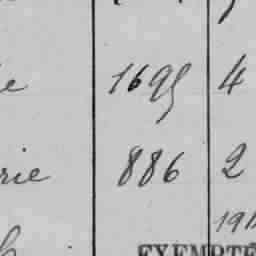 1695 4
rie 886 2
191
EXEMPTÉ